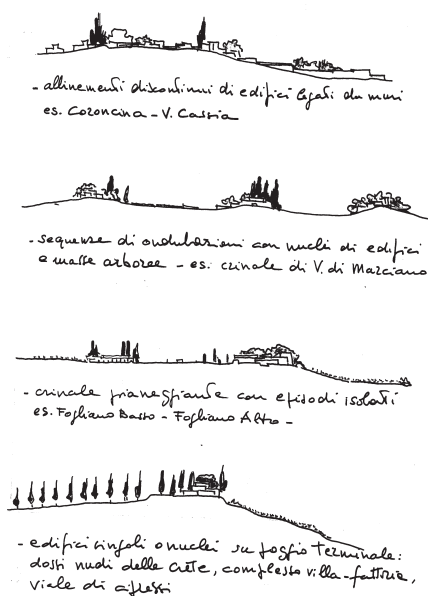 - allineamenti discontinui di edifici legati da muri
es. Coroncina - V. Cassia
- sequenze di ondulazioni con nuclei di edifici
e masse arboree - es. crinale di V. di Marciano
- crinale pianeggiante con episodi isolati
es. Fogliano Basso - Fogliano Alto -
- edifici singoli o nuclei su poggio terminale:
dossi nudi delle crete, complesso villa-fattoria,
viale di cipressi